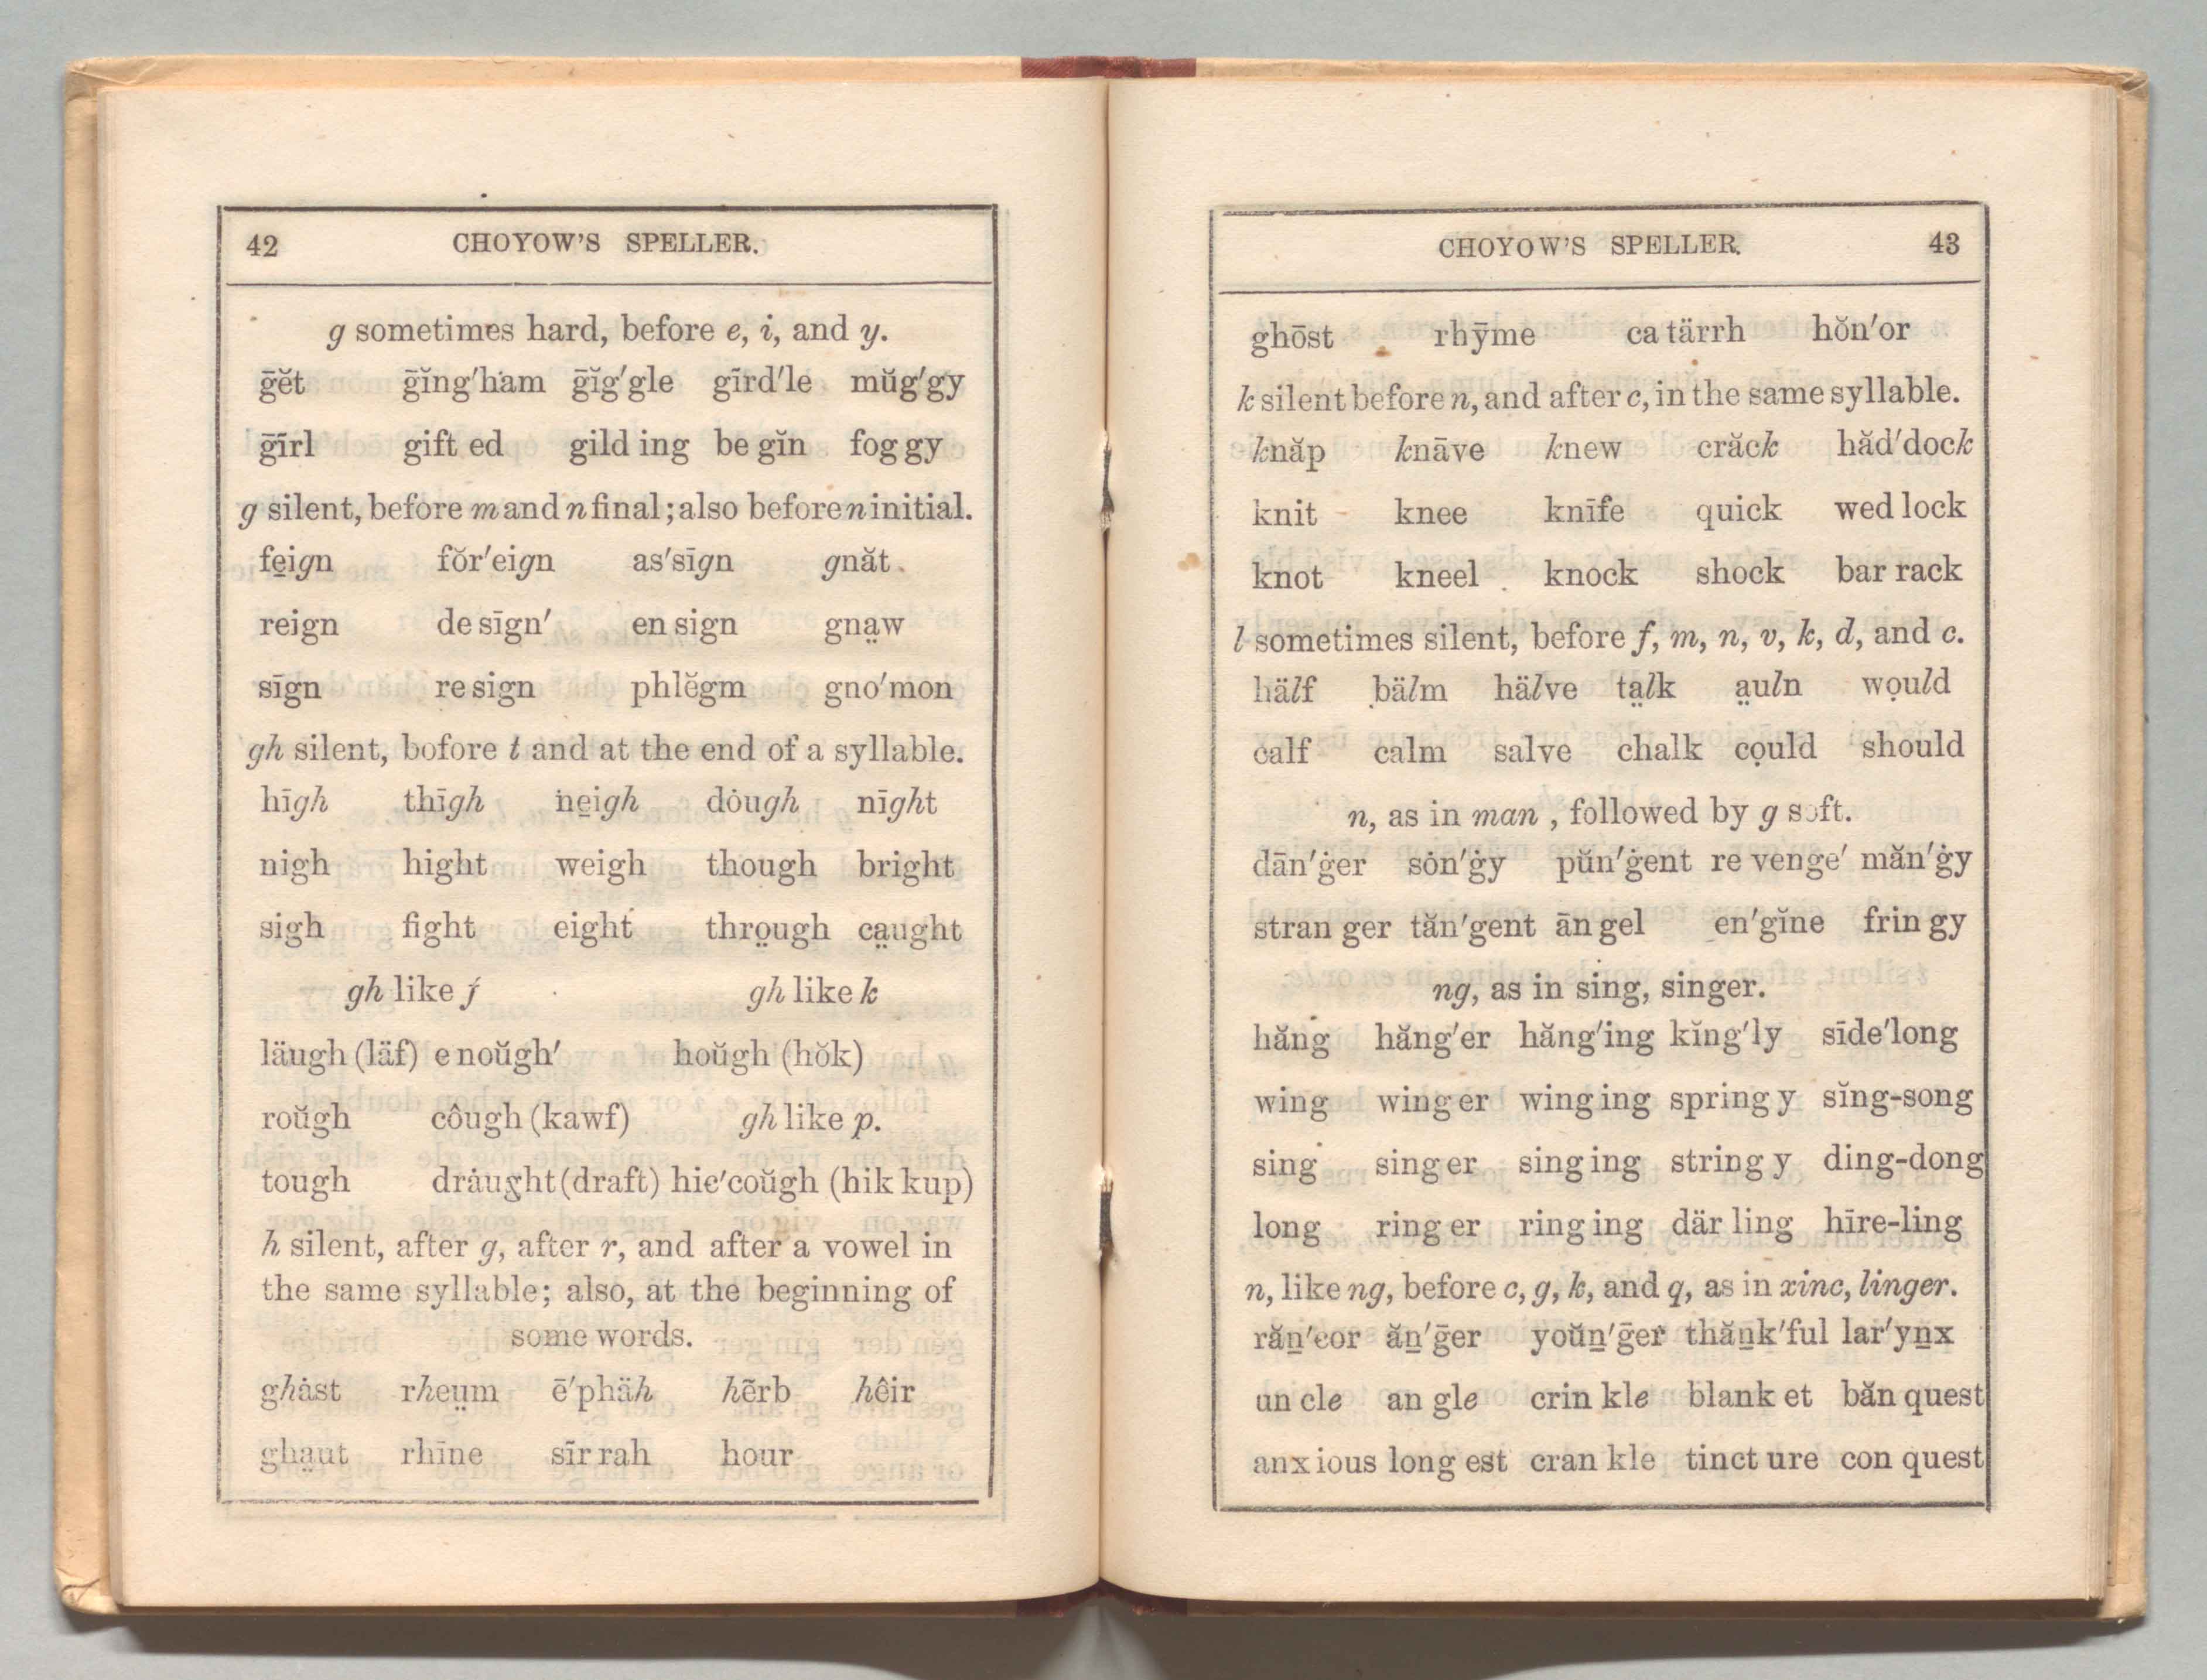 42 CHOYOW'S SPELLER.
g sometimes hard, before e, i, and y.
ḡĕt ḡĭng'ham ḡĭg'gle gĩrd'le mŭg'gy
ḡĩrl gift ed gild ing be gĭn fog gy
g silent, before m and n final; also before n initial.
fe̱ign fŏr'eign as'sīgn gnăt
reign de sīgn' en sign gna̤w
sīgn re sign phlĕgm gno'mon
gh silent, bofore t and at the end of a syllable.
hīgh thīgh ne̱igh dȯugh nīght
nigh hight weigh though bright
sigh fight eight thro̤ugh ca̤ught
gh like f gh like k
läugh (läf) e noŭgh' hoŭgh (hŏk)
roŭgh côugh (kawf) gh like p.
tough drȧught (draft) hic'coŭgh (hik kup)
h silent, after g, after r, and after a vowel in
the same syllable; also, at the beginning of
some words.
ghȧst rheṳm ē'phäh hẽrb hêir
gha̤ut rhīne sĩr rah hour
CHOYOW'S SPELLER. 43
ghōst rhȳme ca tärrh hŏn'or
k silent before n, and after c, in the same syllable.
knăp knāve knew crăck hăd'dock
knit knee knīfe quick wed lock
knot kneel knock shock bar rack
l sometimes silent, before f, m, n, v, k, d, and c.
hälf bälm hälve ta̤lk a̤uln wo̤uld
calf calm salve chalk co̤uld should
n, as in man , followed by g soft.
dān'ġer sȯn'ġy pŭn'ġent re venge' măn'ġy
stran ger tăn'gent ān gel en'gĭne frin gy
ng, as in sing, singer.
hăng hăng'er hăng'ing kĭng'ly sīde'long
wing wing er wing ing spring y sĭng-song
sing sing er sing ing string y ding-dong
long ring er ring ing där ling hīre-ling
n, like ng, before c, g, k, and q, as in xinc, linger.
răṉ'cor ăṉ'ḡer yoŭṉ'ḡer thăṉk'ful lar'yṉx
un cle an gle crin kle blank et băn quest
anx ious long est cran kle tinct ure con quest